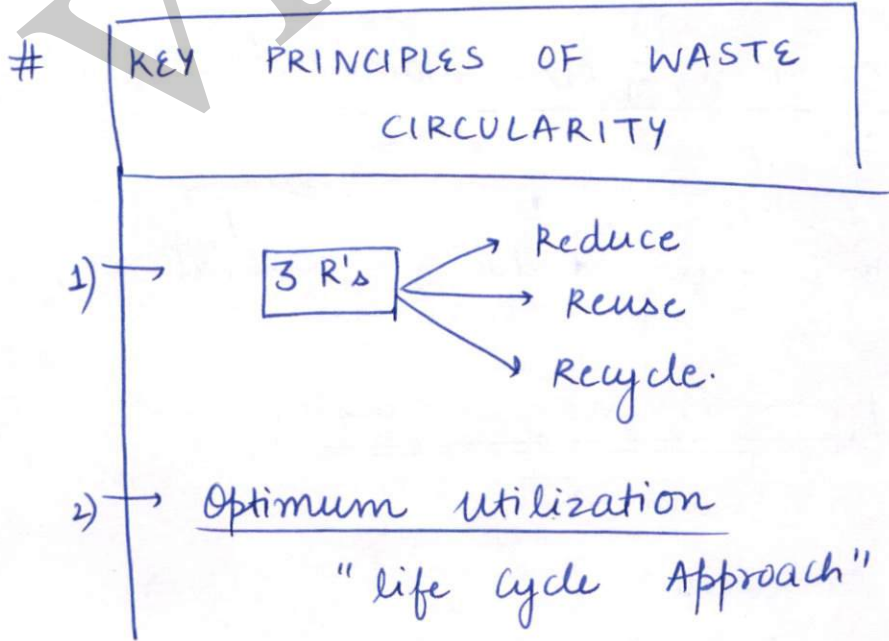 # KEY PRINCIPLES OF WASTE
CIRCULARITY
1) → 3 R's → Reduce
→ Reuse
→ Recycle.
2) → Optimum utilization
"life cycle Approach"